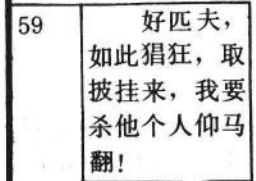 59
好匹夫，
如此猖狂，取
披挂来，我要
杀他个人仰马
翻！